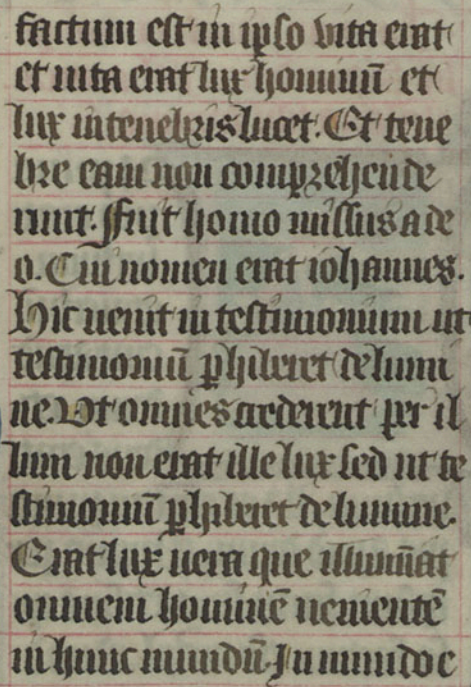 factum est in ipso vita erat
et uita erat lux hominū et
lux in tenebris lucet. Et tene
bre eam non comprehende
runt. Fuit homo missus a de
o. Cui nomen erat iohannes.
Hic uenit in testimonium ut
testimoniū ꝑhiberet de lumi
ne. Ut omnes crederent per il
lum non erat ille lux sed ut te
stimoniū ꝑhiberet de lumine.
Erat lux uera que illumīat
omnem hominē uenientē
in hunc mundū. In mundo e